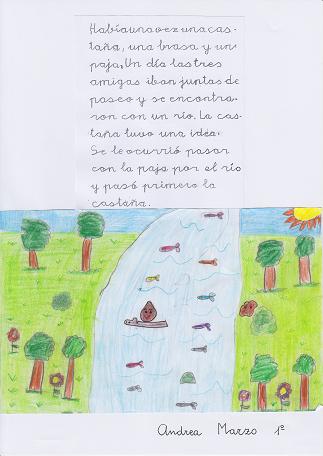 Había una vez una cas-
taña, una brasa y un
paja. Un día las tres
amigas iban juntas de
paseo y se encontra-
ron con un río. La cas-
taña tuvo una idea.
Se le ocurrió pasar
con la paja por el río
y pasó primero la
castaña.
Andrea Marzo 1º